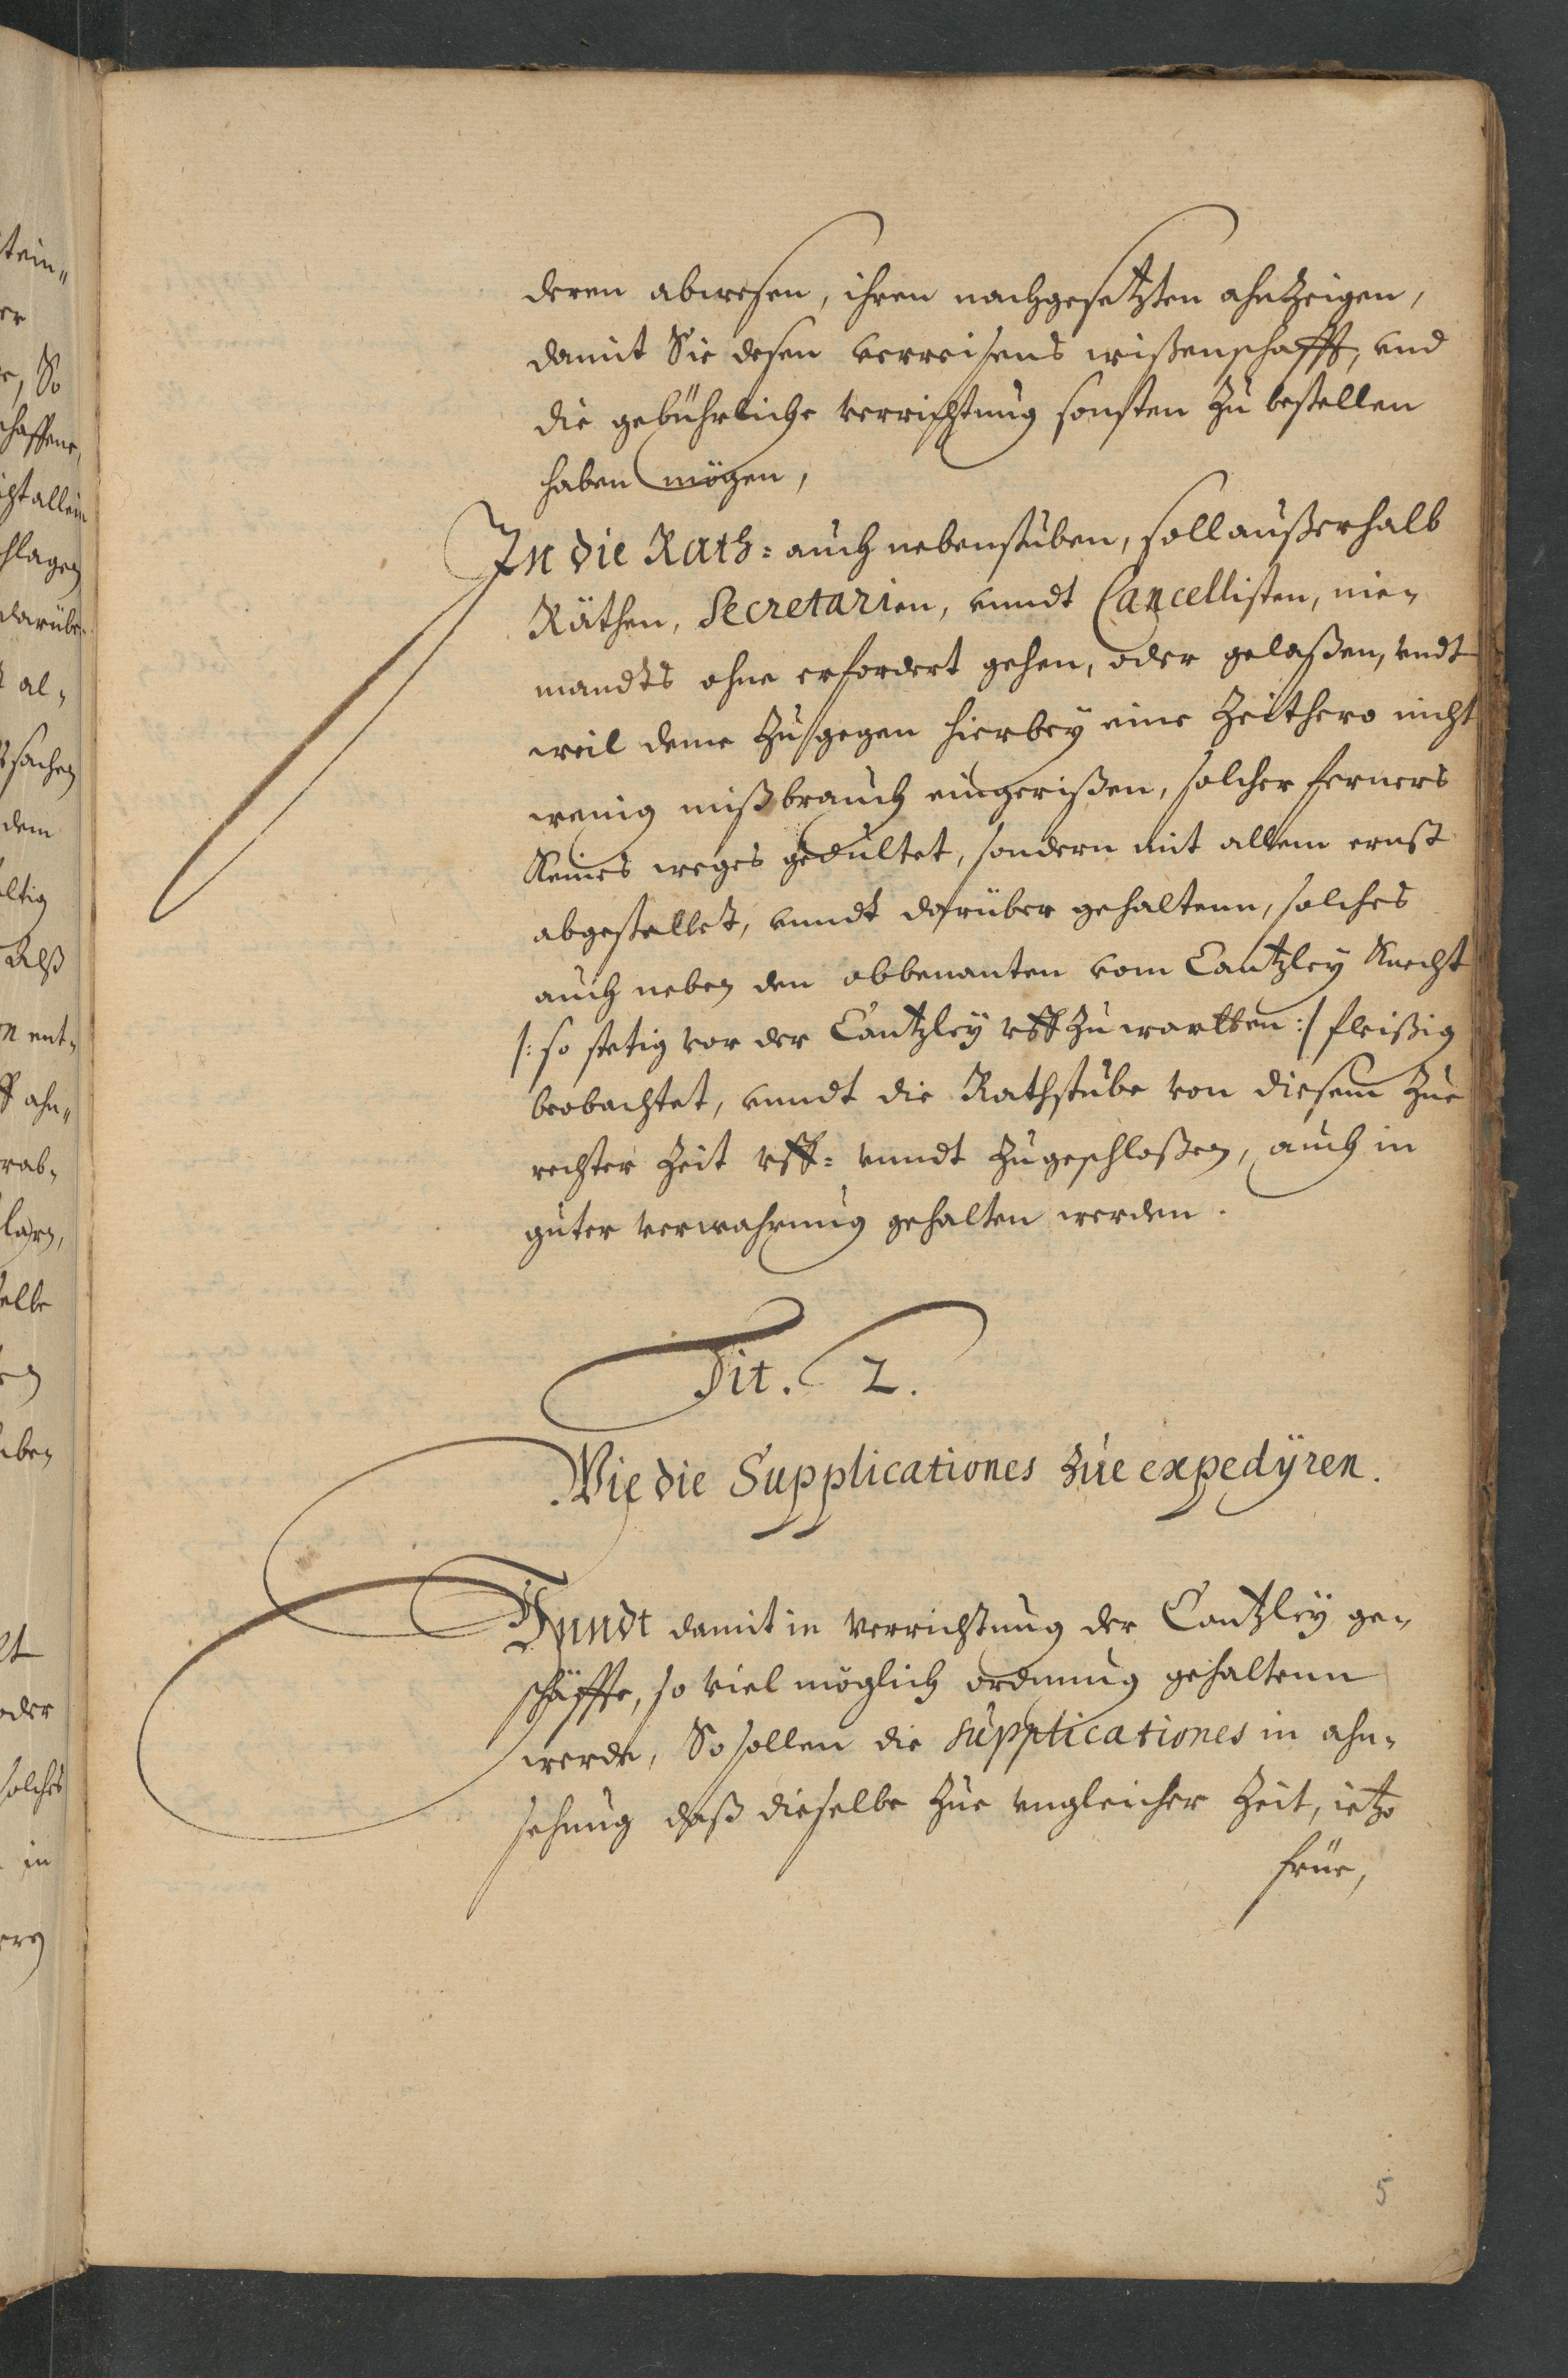 deren abwesen, ihren nachgesetzten ahnzeigen,
damit Sie desen verreisens wißenschafft, und
die gebührliche verrichtung sonsten zu bestellen
haben mögen,
In die Rath= auch nebenstuben, soll außerhalb
Räthen, Secretarien, vnndt Cancellisten, nie-
mandts ohne erfordert gehen, oder gelaßen, undt
weil deme zugegen hierbey eine Zeithero nicht
wenig mißbrauch eingerißen, solcher ferners
Keines weges gedultet, sondern mit allem ernst
abgestellet, vnndt darüber gehaltenn, solches
auch neben den obbenanten vom Cantzley Knecht
/: so stetig vor der Cantzley uff zu wartten :/ fleißig
beobachtet, vnndt die Rathstube von diesem zue
rechter Zeit uff= vnndt zugeschloßen, auch in
guter verwahrung gehalten werden.
Tit. 2.
Wie die Supplicationes zue expedÿren.
Vnndt damit in Verrichtung der Cantzley ge-
schäffte, so viel möglich ordnung gehaltenn
werde, So sollen die Supplicationes in ahn-
sehung daß dieselbe zue ungleicher Zeit, ietzo
früe,
5